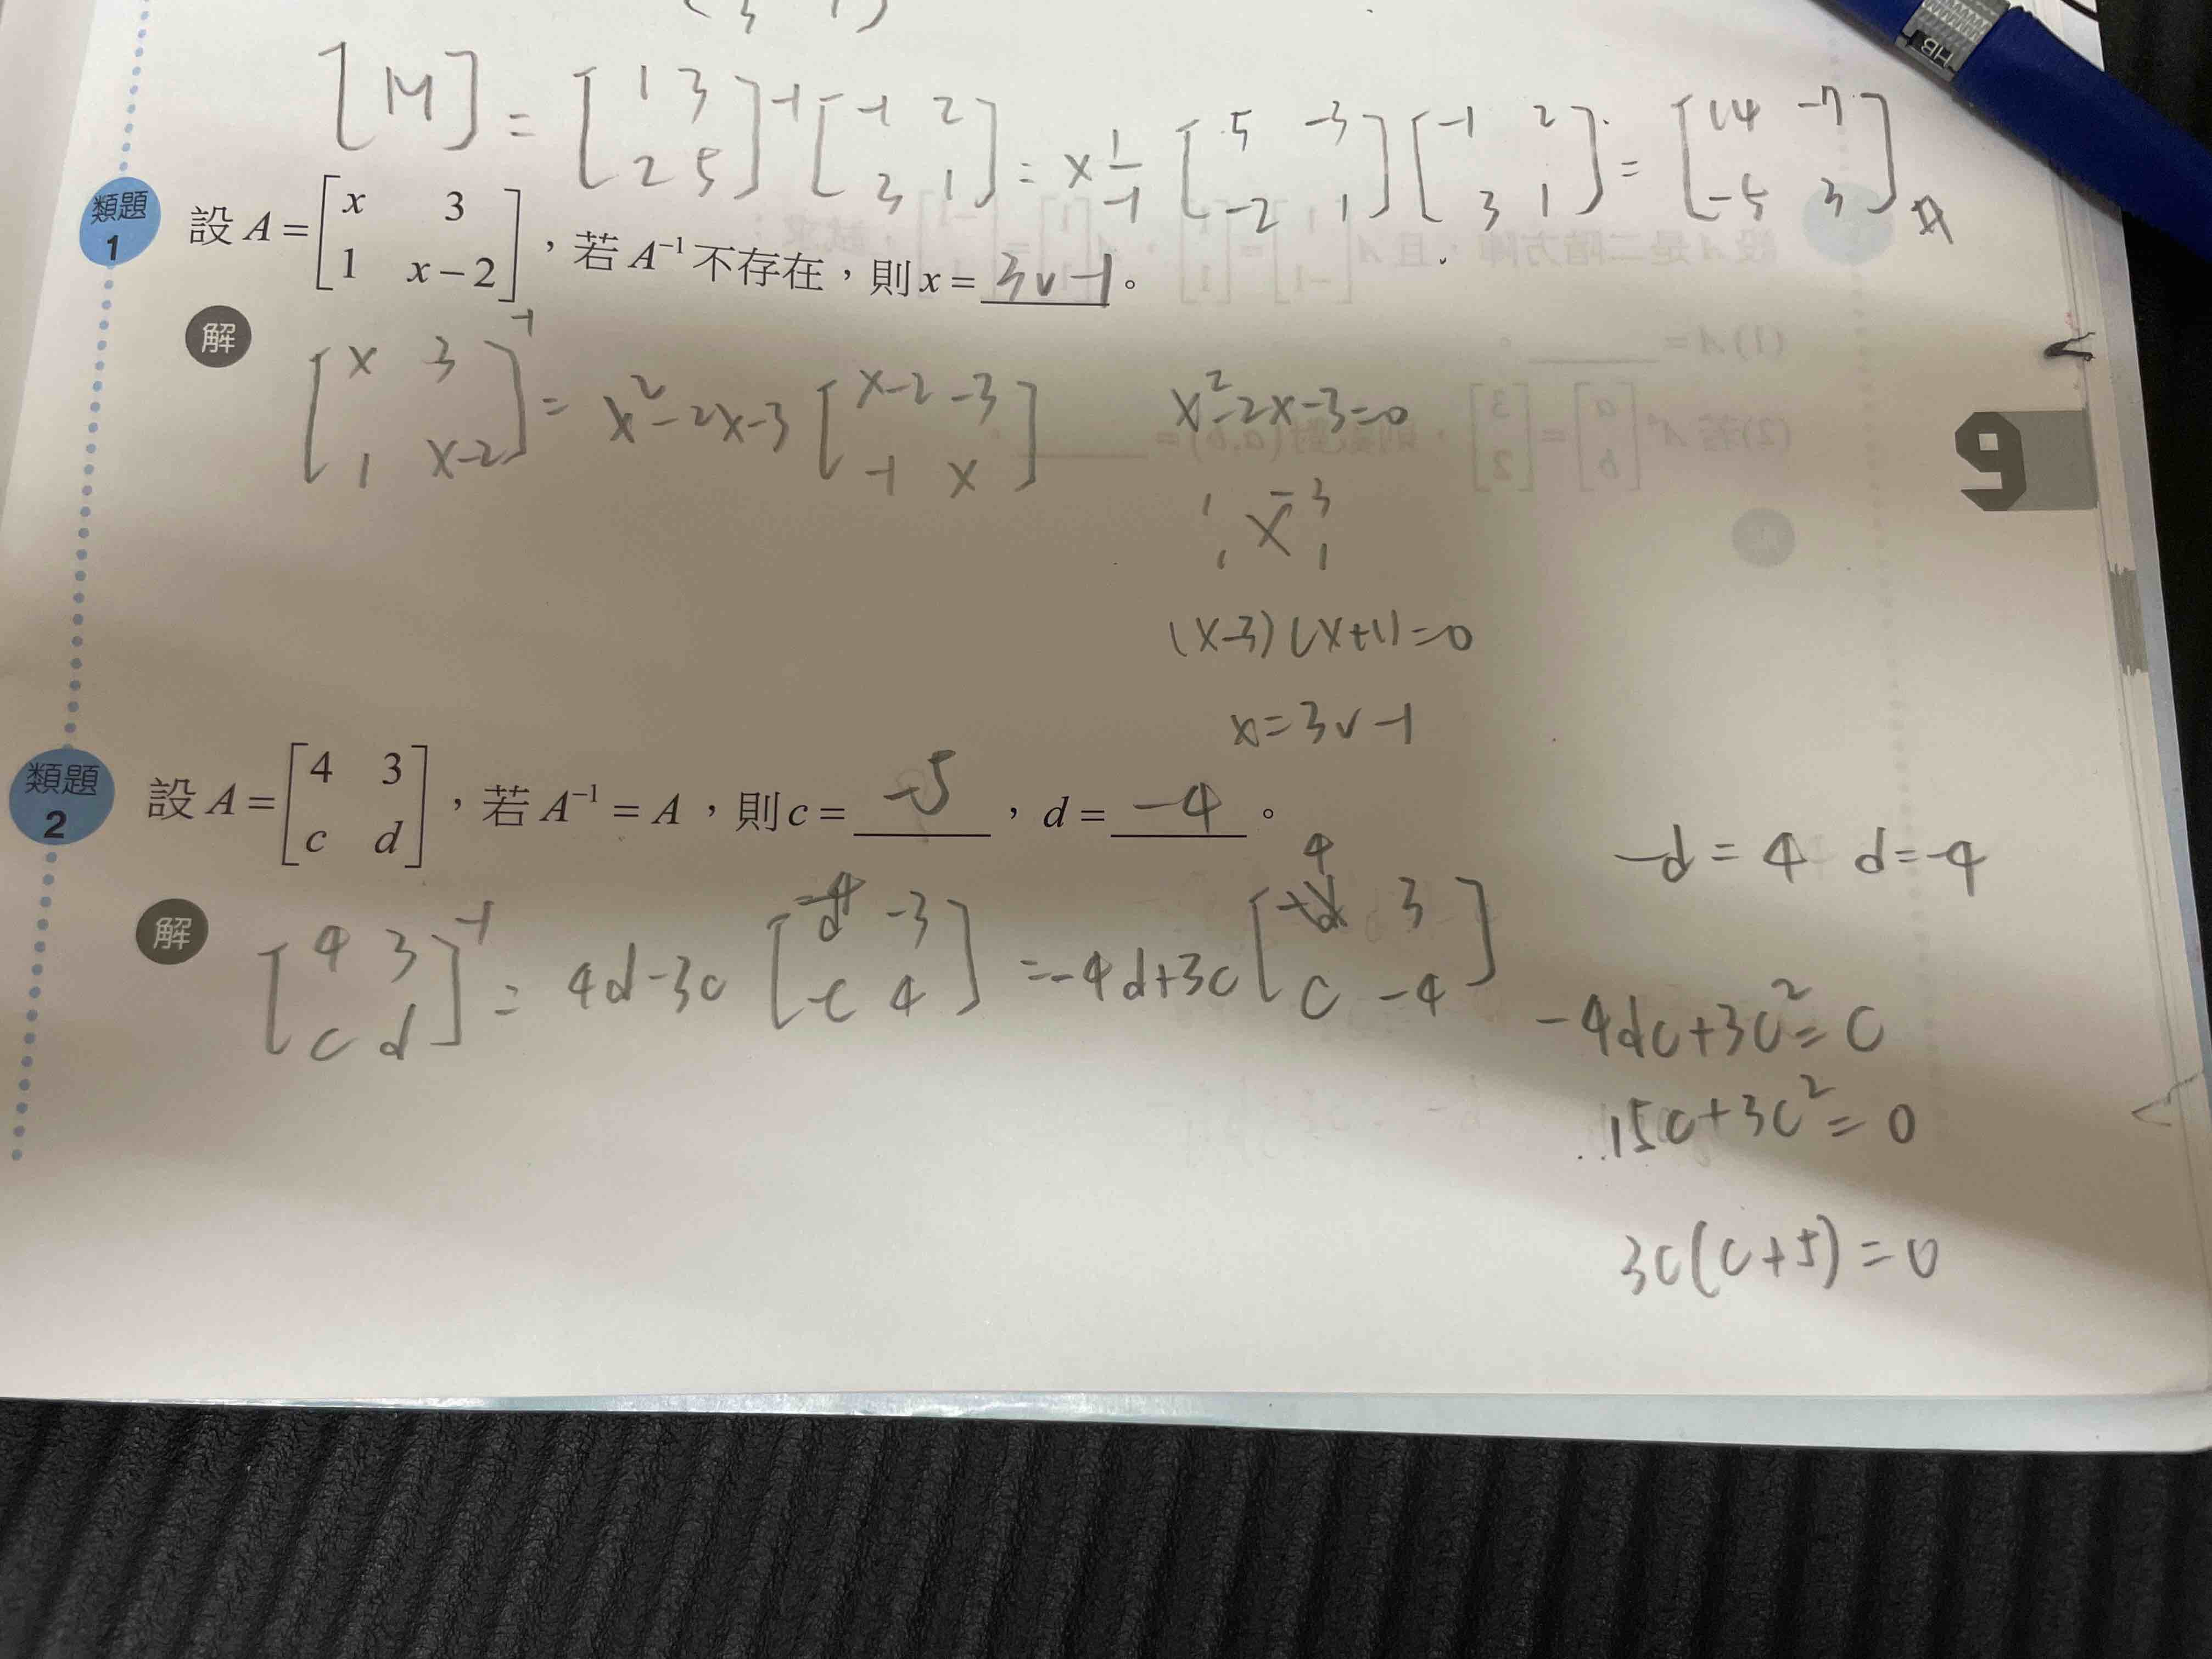 [M] = [1 3; 2 5]⁻¹ [-1 2; 3 1] = × 1/-1 [5 -3; -2 1] [-1 2; 3 1] = [14 -7; -5 3]
類題1 設 A = [x 3; 1 x-2],若 A⁻¹ 不存在,則 x = 3 v -1。
解
[x 3; 1 x-2]⁻¹ = x²-2x-3 [x-2 -3; -1 x]
x²-2x-3=0
1 -3
1 1
(x-3)(x+1)=0
x=3 v -1
類題2 設 A = [4 3; c d],若 A⁻¹ = A,則 c = -5,d = -4。
解
[4 3; c d]⁻¹ = 4d-3c [d -3; -c 4] = -4d+3c [-d 3; c -4]
4
-d=4 d=-4
-4dc+3c²=c
15c+3c²=0
3c(c+5)=0
9
HB